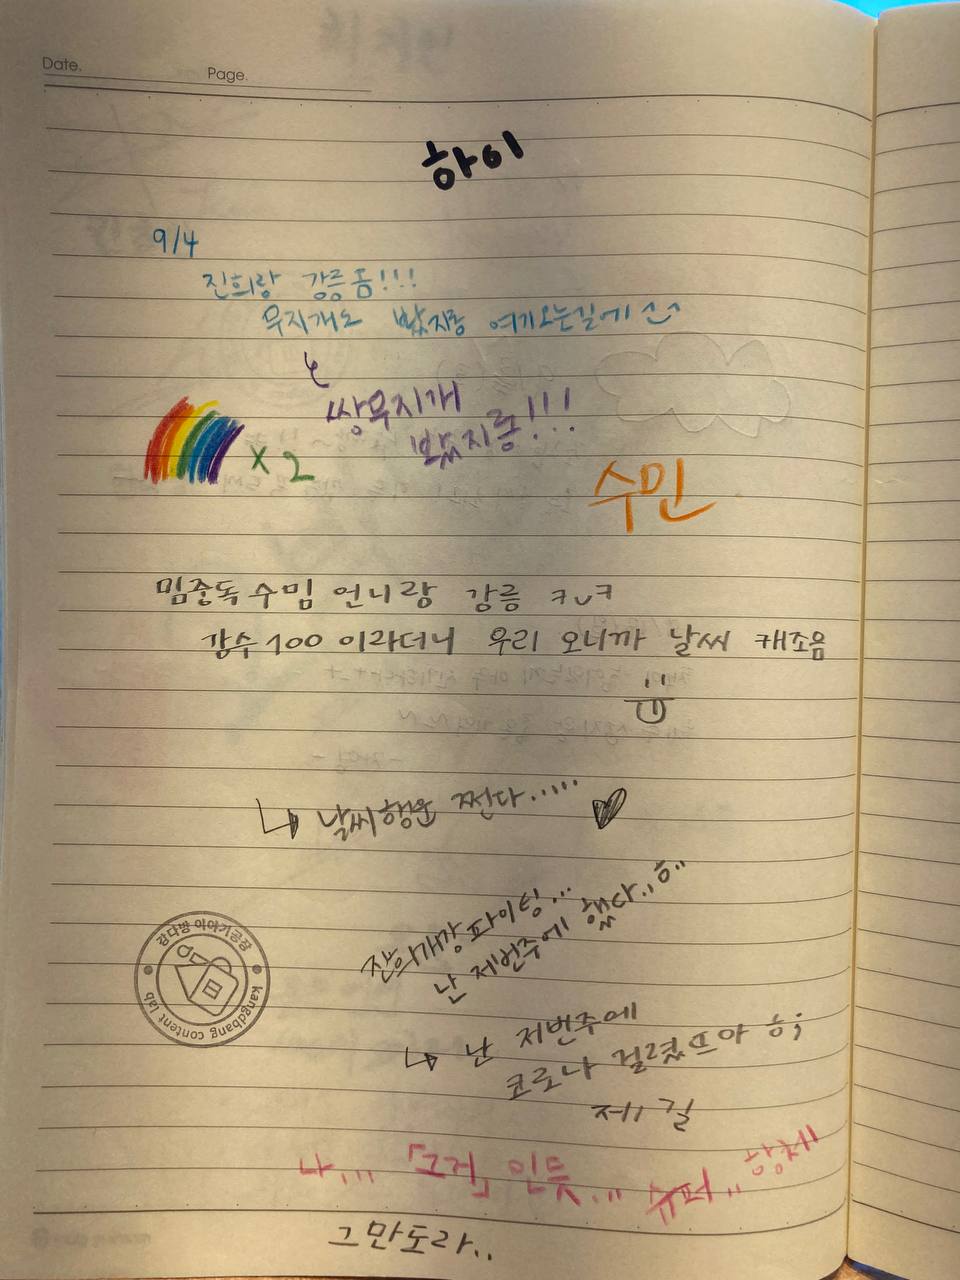 Date.
Page.
하이
9/4
진희랑 강릉옴!!!
무지개도 봤지롱 여기오는길에 ^_^
쌍무지개
봤지롱!!!
x 2
수민
밈중독수밈 언니랑 강릉 ㅋㅅㅋ
강수100 이라더니 우리 오니까 날씨 캐조음
↳ 날씨행운 쩐다.....
♥
개강파이팅...
난 저번주에 했다..ㅎ..
↳ 난 저번주에
코로나 걸렸뜨아 ㅎ;
제길
나... 「그거」 인듯... 슈퍼.. 항체
그만도라..
강다방 이야기공장
kangdbang content lab